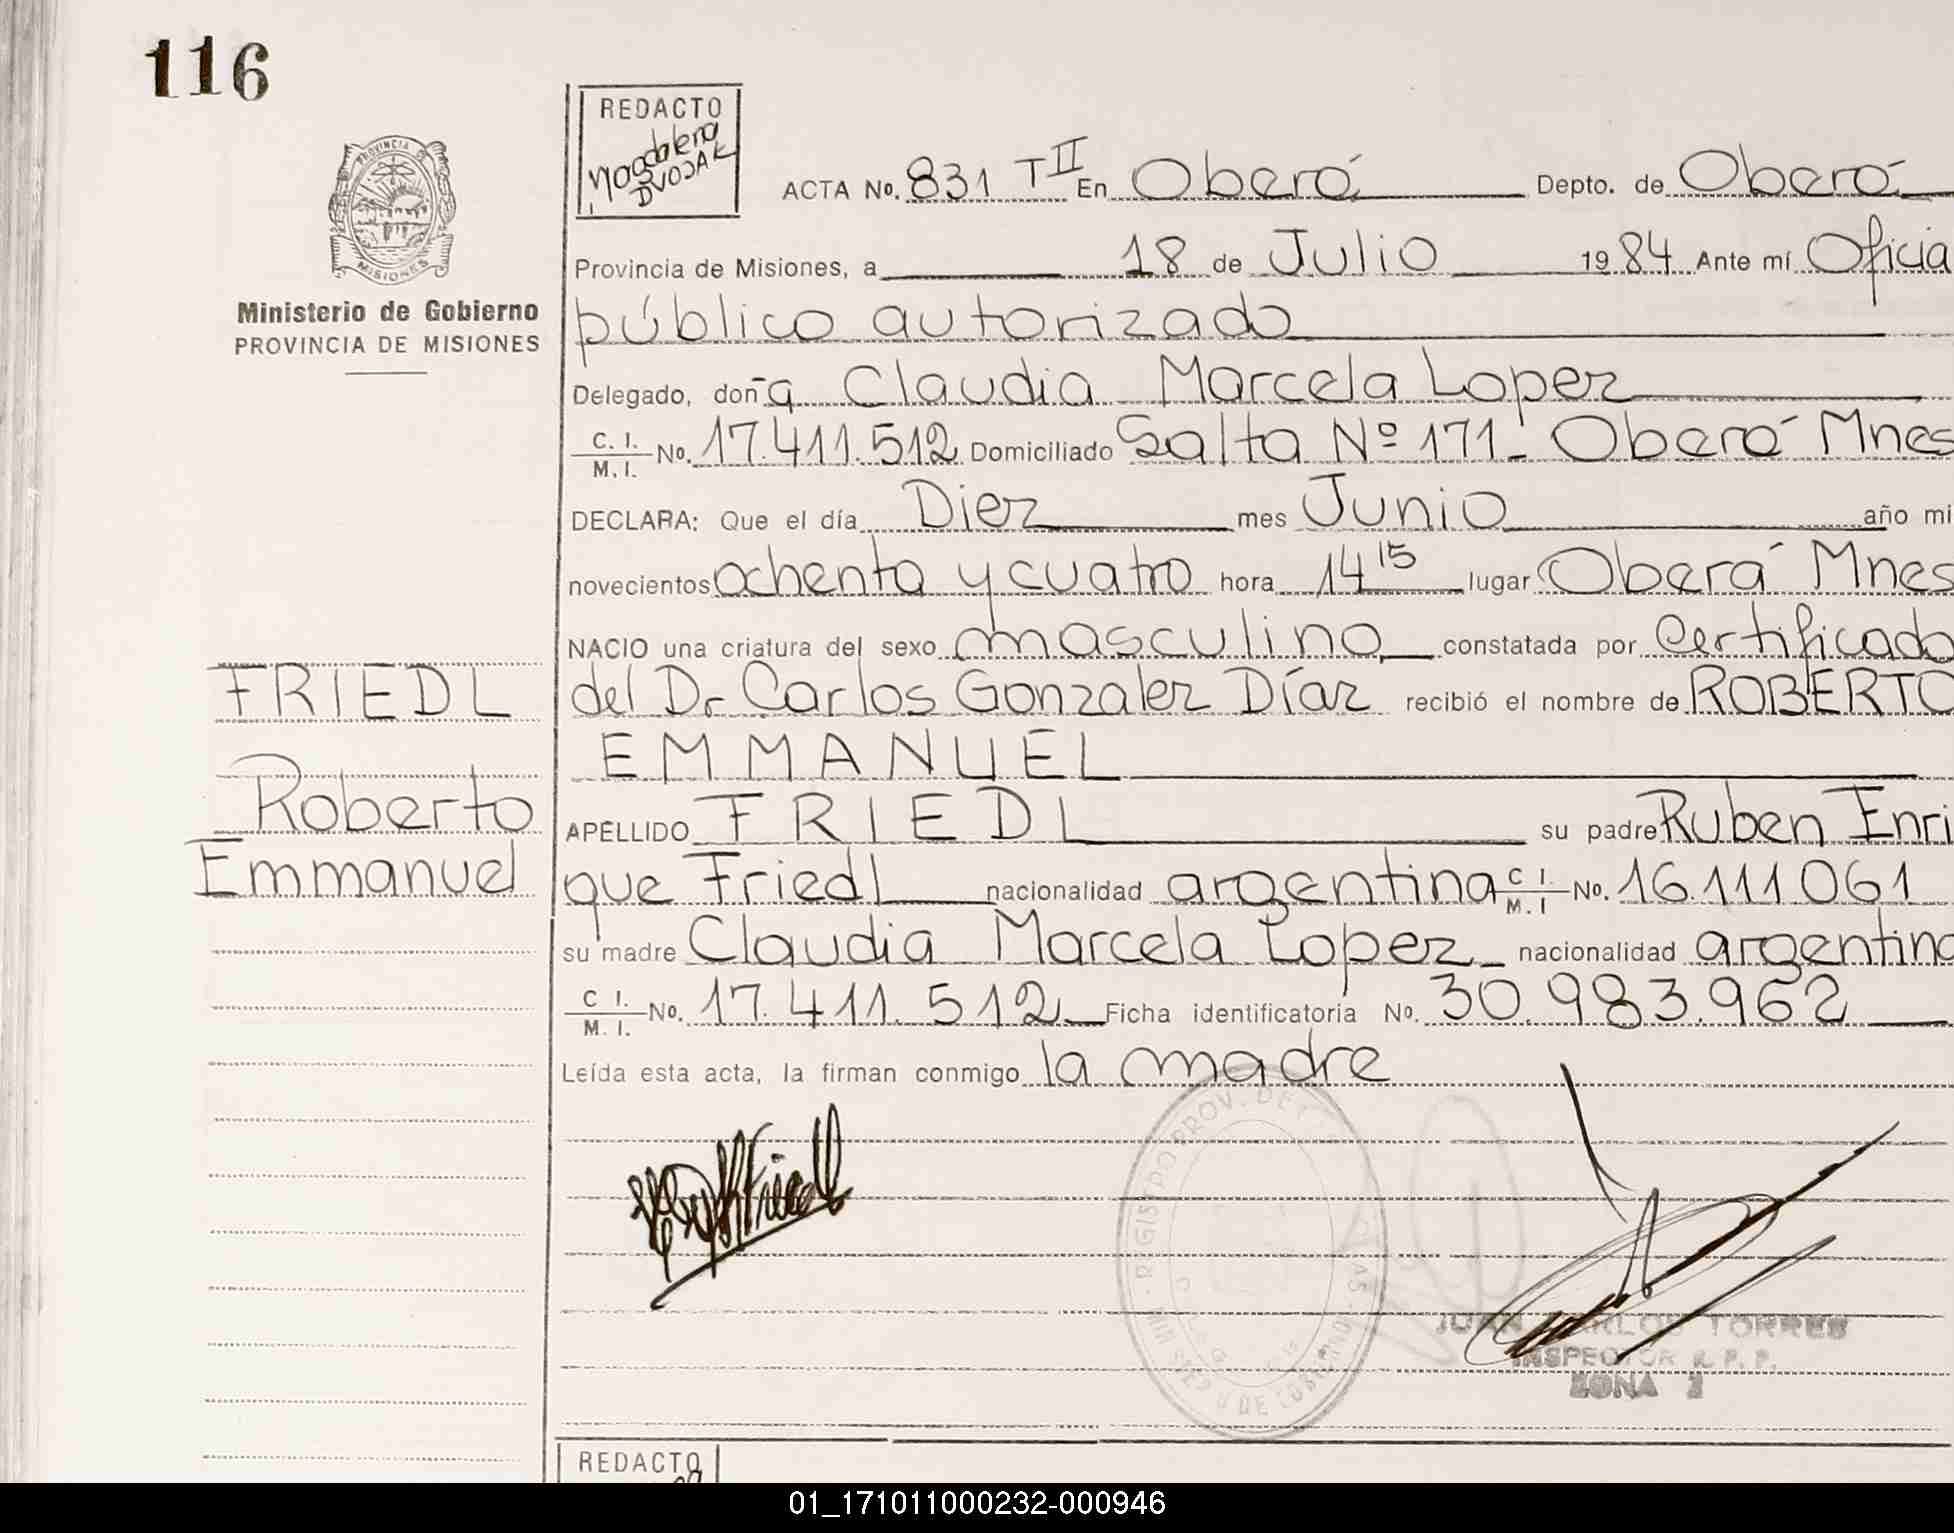 116
REDACTO
Magdalena
DVOJAK
PROVINCIA DE
MISIONES
Ministerio de Gobierno
PROVINCIA DE MISIONES
ACTA No. 831 T II En Oberá Depto. de Oberá
Provincia de Misiones, a 18 de Julio 1984 Ante mí Oficia
público autorizado
Delegado, doña Claudia Marcela Lopez
C. I. / M. I. No. 17.411.512 Domiciliado Salta Nº 171_ Oberá Mnes
DECLARA: Que el día Diez mes Junio año mi
novecientos ochenta y cuatro hora 14 15 lugar Oberá Mnes
NACIO una criatura del sexo masculino constatada por Certificado
del Dr Carlos Gonzalez Díaz recibió el nombre de ROBERTO
EMMANUEL
APELLIDO FRIEDL su padre Ruben Enri
que Friedl nacionalidad argentina C I. / M. I No. 16.111.061
su madre Claudia Marcela Lopez_ nacionalidad argentina
C I. / M. I. No. 17.411.512 Ficha identificatoria No. 30.983.962
Leída esta acta, la firman conmigo la madre
FRIEDL
Roberto
Emmanuel
JUAN CARLOS TORRES
INSPECTOR R. P. P.
ZONA 2
REDACTO
01_171011000232-000946